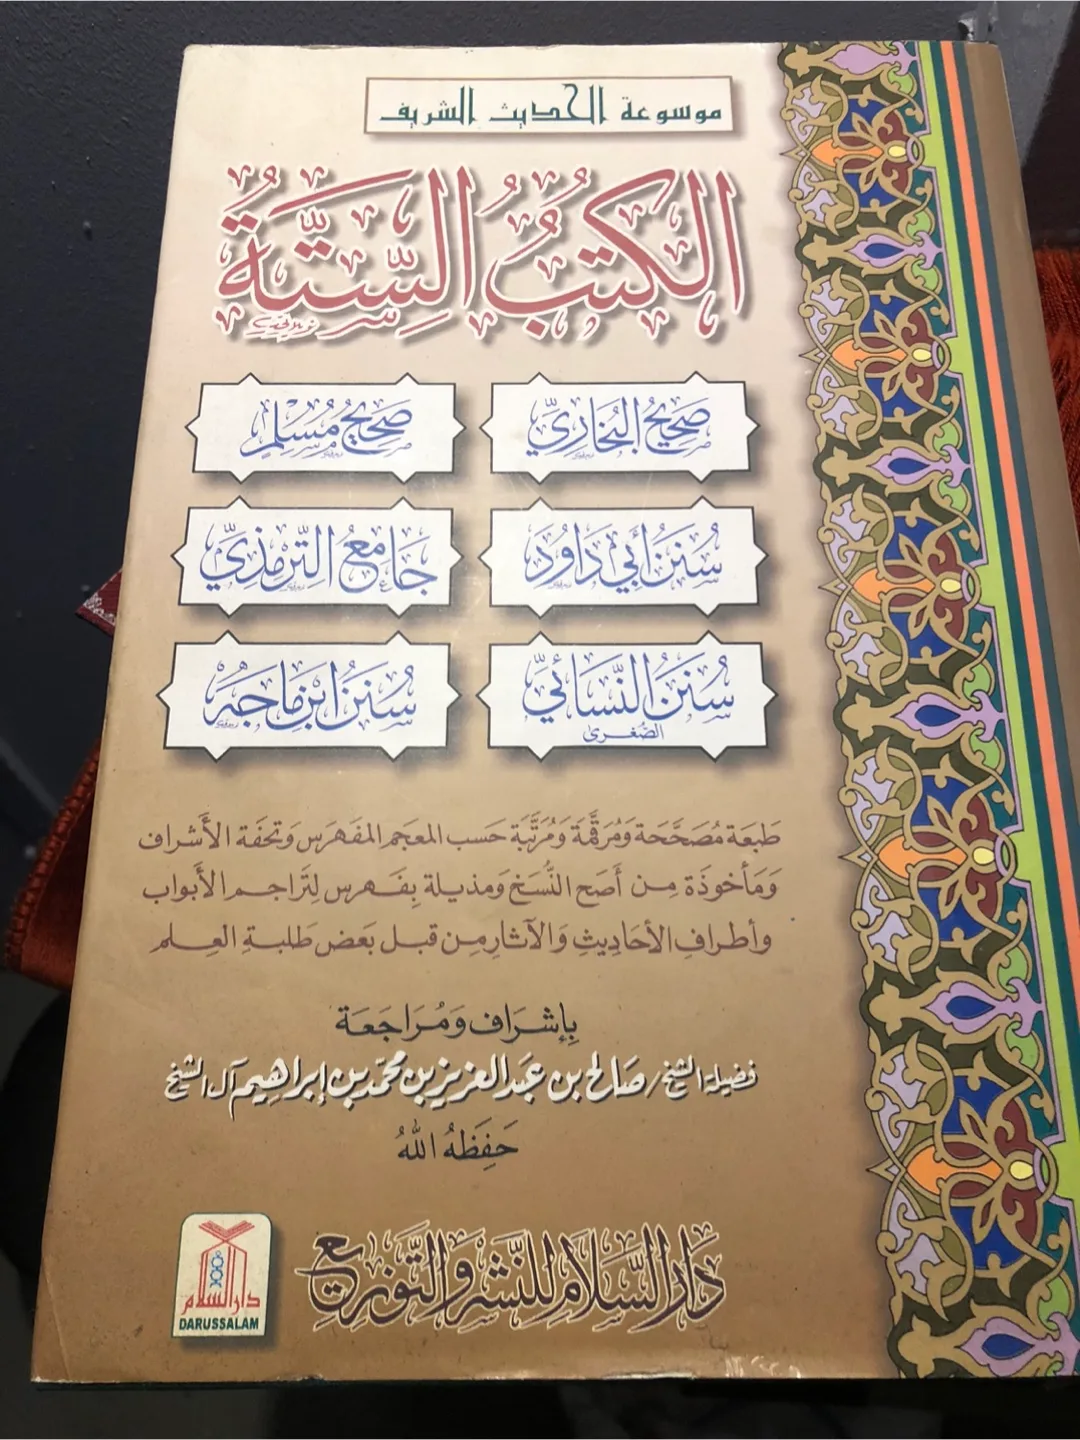 موسوعة الحديث الشريف
الكتبُ السِّتَّةُ
صَحِيحُ البُخَارِيّ
صَحِيحُ مُسْلِم
سُنَنُ أَبِي دَاوُدَ
جَامِعُ التِّرمِذِيّ
سُنَنُ النَّسَائِيّ
الصُّغرى
سُنَنُ ابنِ مَاجَه
طَبعَة مُصَحَّحَة وَمُرَقَّمَة وَمُرَتَّبَة حَسب المعجم المفهرس وَتحفَة الأَشراف
وَمَأخوذَة مِن أَصح النُّسَخ وَمذيلة بِفَهرس لِتَراجم الأَبواب
وأطراف الأحَادِيثِ وَالآثارِ مِن قبل بَعض طَلبةِ العِلم
بِإشرَاف وَمُرَاجَعَة
فضيلة الشيخ/ صَالح بن عَبد العزيز بن محمّد بن إبراهيم آل الشيخ
حَفِظَهُ اللهُ
دَارُ السَّلَام لِلنَّشر وَالتَّوزيع
دار السلام
DARUSSALAM